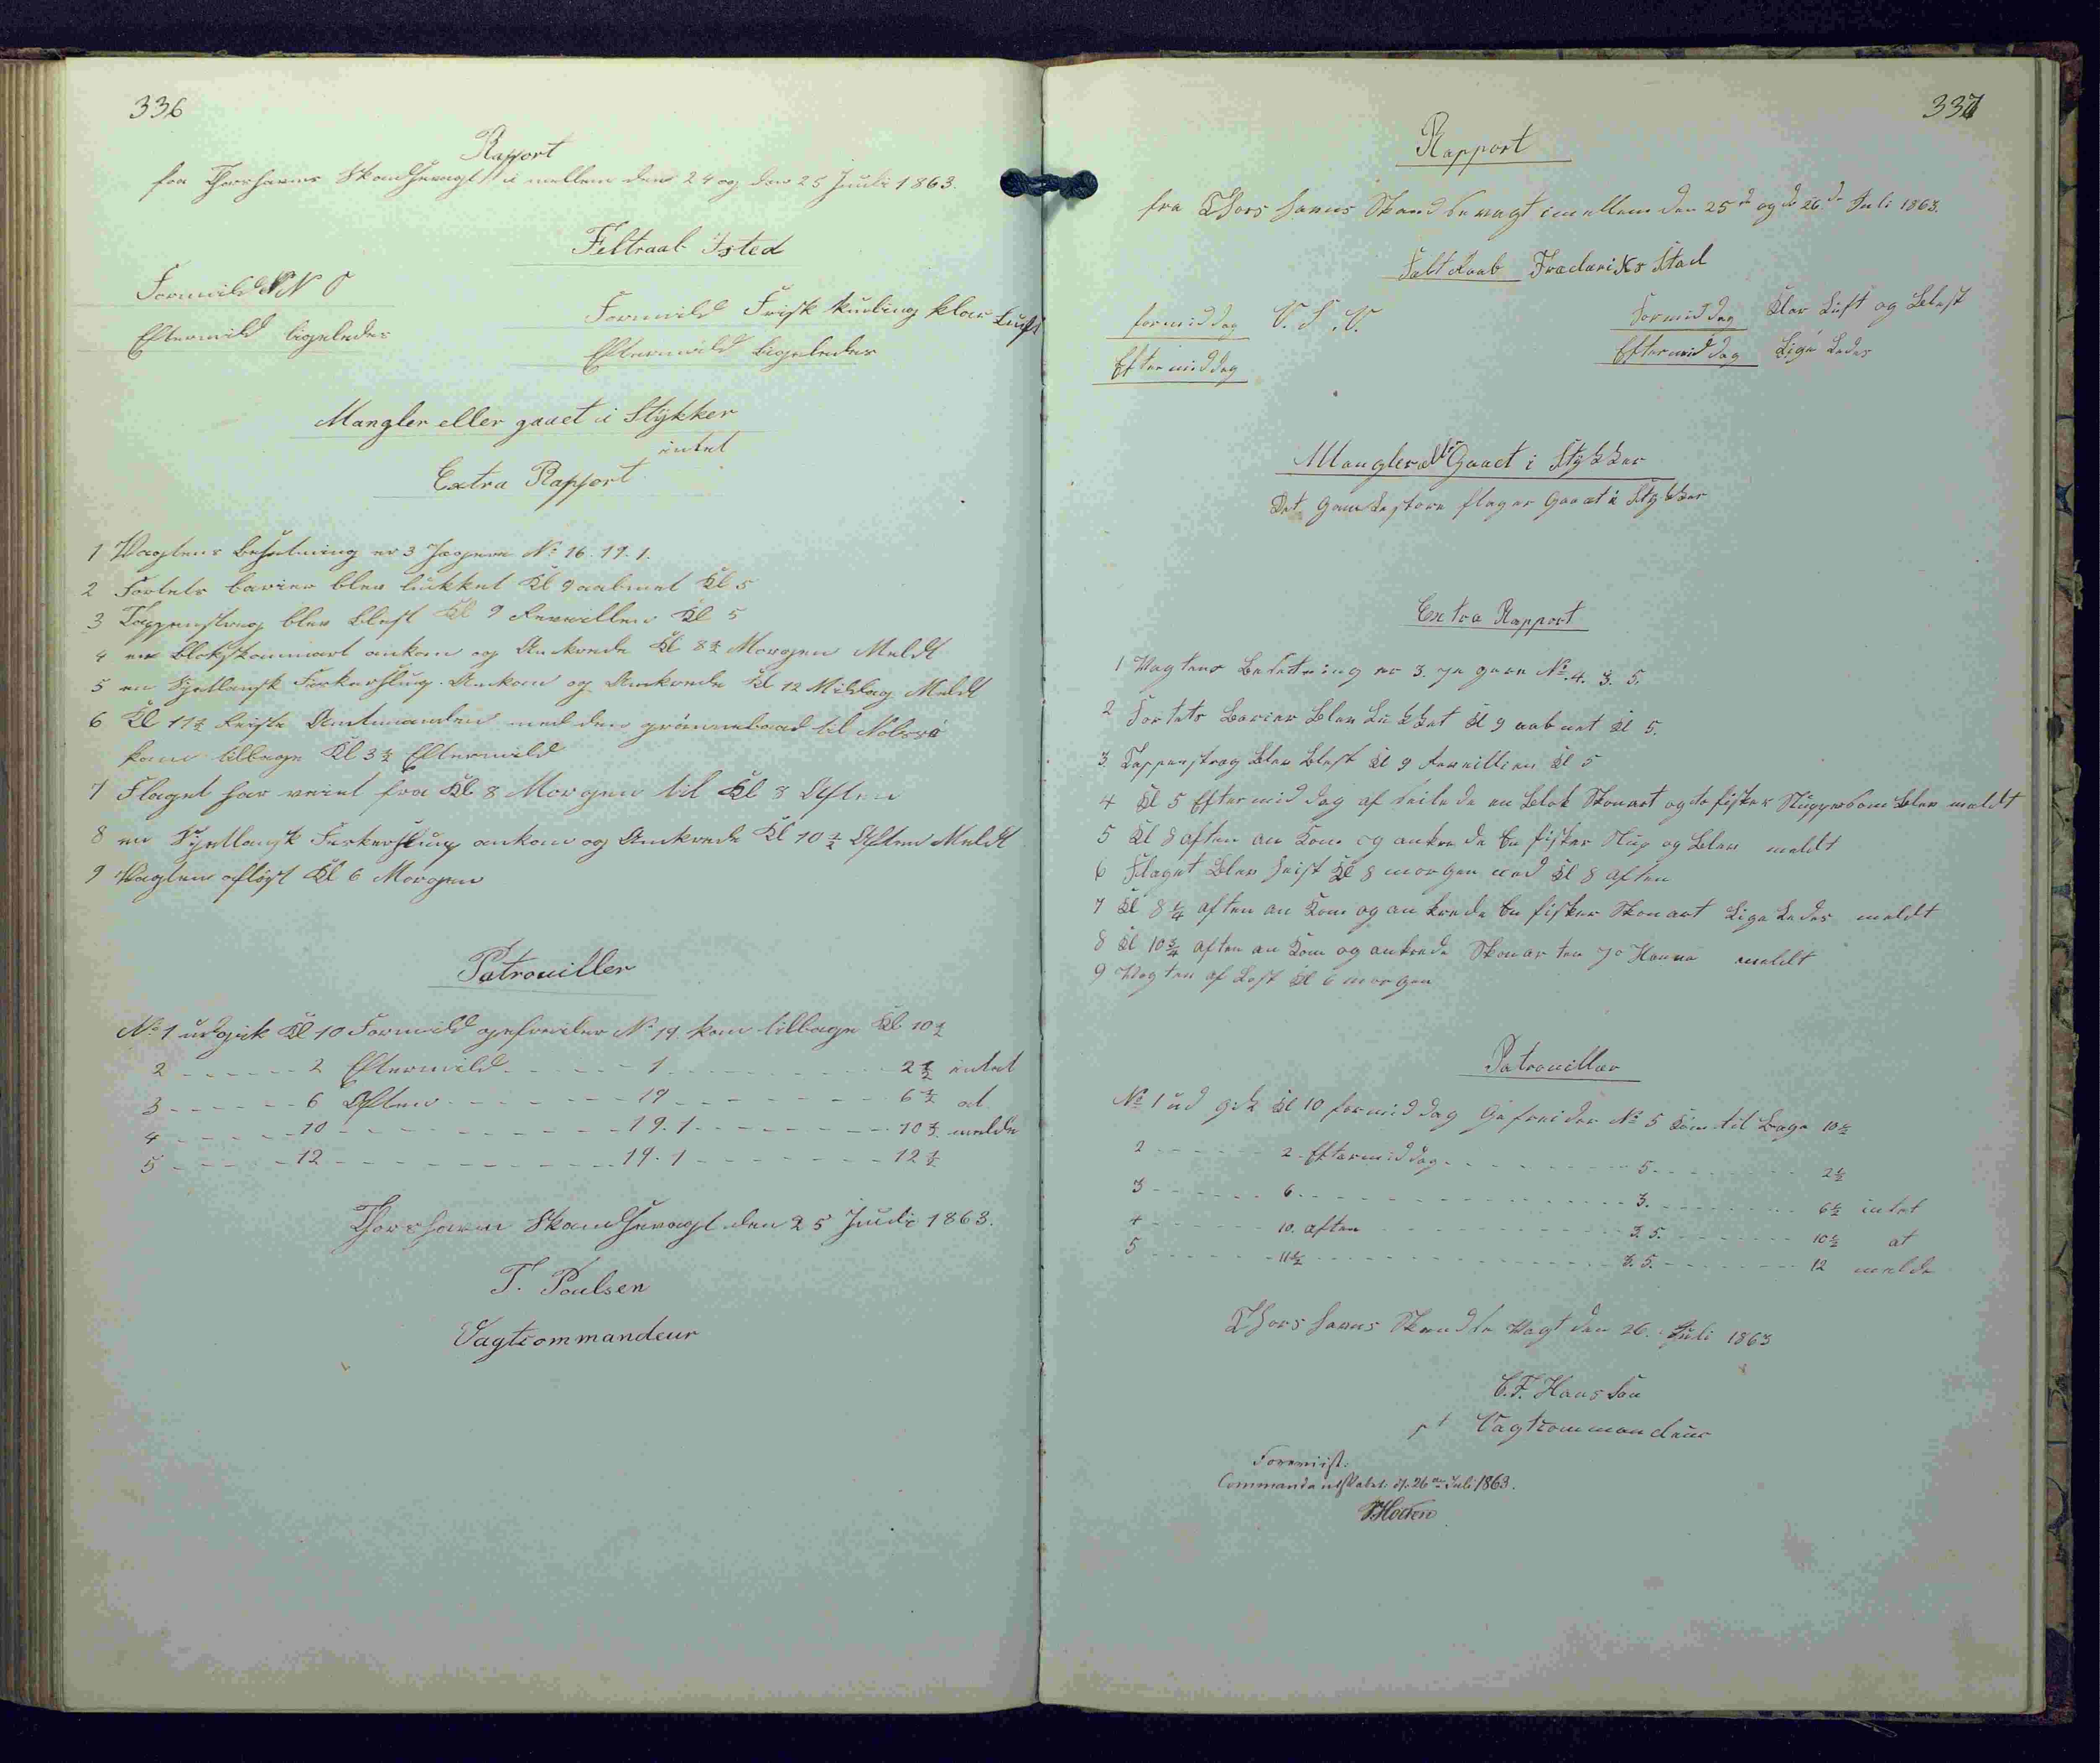 336
Rapport
fra Thorshavns Skandsevagt i mellem den 24 og den 25 Juuli 1863.
Feltraab Isted
Formidd N O
Eftermidd ligeledes
Formidd Frisk kuling klar Luft
Eftermidd ligeledes
Mangler eller gaaet i Stykker
intet
Extra Rapport
1 Vagtens besætning er 3 Jægere No 16. 19. 1.
2 Fortets barier blev lukket Kl 9 aabnet Kl 5
3 Tappenstrag blev blest Kl 9 Revveillen Kl 5
4 en Blokskonnart ankom og Ankrede Kl 8½ Morgen Meldt
5 en Sjetlansk Fiskerslup Ankom og Ankrede Kl 12 Middag Meldt
6 Kl 11½ Reiste Amtmanden med den grönnebaad til Nolsöö
kom tilbage Kl 3½ Eftermidd
7 Flaget har veiet fra Kl 8 Morgen til Kl 8 Aften
8 en Sjetlansk Fiskerslup ankom og Ankrede Kl 10½ Aften Meldt
9 Vagten aflöst Kl 6 Morgen
Patrouiller
No 1 udgik Kl 10 Formidd gefreider No 19. kom tilbage Kl 10½
2 - - - - - - 2 Eftermidd - - - - - - 1 - - - - - - - - - 2½ intet
3 - - - - - - 6 Aften - - - - - - - 19 - - - - - - - - - 6½ at
4 - - - - - - 10 - - - - - - - - - 19. 1 - - - - - - - - 10½ melde
5 - - - - - - 12 - - - - - - - - - 19. 1 - - - - - - - - 12½
Thorshavn Skandsevagt den 25 Juuli 1863.
T. Poulsen
Vagtcommandeur
337
Rapport
fra Thorshavns Skandsevagt imellem den 25de og de 26de Juli 1863.
Felt Raab Frederiks Stad
formiddag V. S. V.
Eftermiddag
Formiddag Klar Luft og Blest
Eftermiddag Lige Ledes
Mangler ell Gaaet i Stykker
Det Gamle store flag er Gaaet i Stykker
Extra Rapport
1 Vagtens Besetning er 3. Jægere No. 4. 3. 5.
2 Fortets Barier Blev Lukket Kl 9 aabnet Kl 5.
3 Tappenstrag Blev Blest Kl 9 Reveillien Kl 5
4 Kl 5 Eftermiddag af seilede en Blok Skonart og to fisker Slupper som Blev meldt
5 Kl 8 aften an Kom og ankrede En fisker Slup og Blev meldt
6 Flaget Blev heist Kl 8 morgen ned Kl 8 aften
7 Kl 8¼ aften an Kom og ankrede En fisker Skonart Lige Ledes meldt
8 Kl 10¾ aften an Kom og ankrede Skonarten Jo Hanna meldt
9 Vagten af Løst Kl 6 morgen
Patrouiller
No 1 ud gik Kl 10 formiddag Gefreider No 5 Kom til Bage 10½
2 - - - - - - 2 Eftermiddag - - - - - - - 5 - - - - - - 2½
3 - - - - - - 6 - - - - - - - - - - - - 3. - - - - - - 6½ intet
4 - - - - - - 10. aften - - - - - - - - 3. 5. - - - - - - 10½ at
5 - - - - - - 11½ - - - - - - - - - - 3. 5. - - - - - - 12 melde
Thorshavns Skandse Vagt den 26. Juli 1863
C. F. Hans Sen
pt Vagtcommandeur
Foreviist.
Commandantskabet d. 26de Juli 1863.